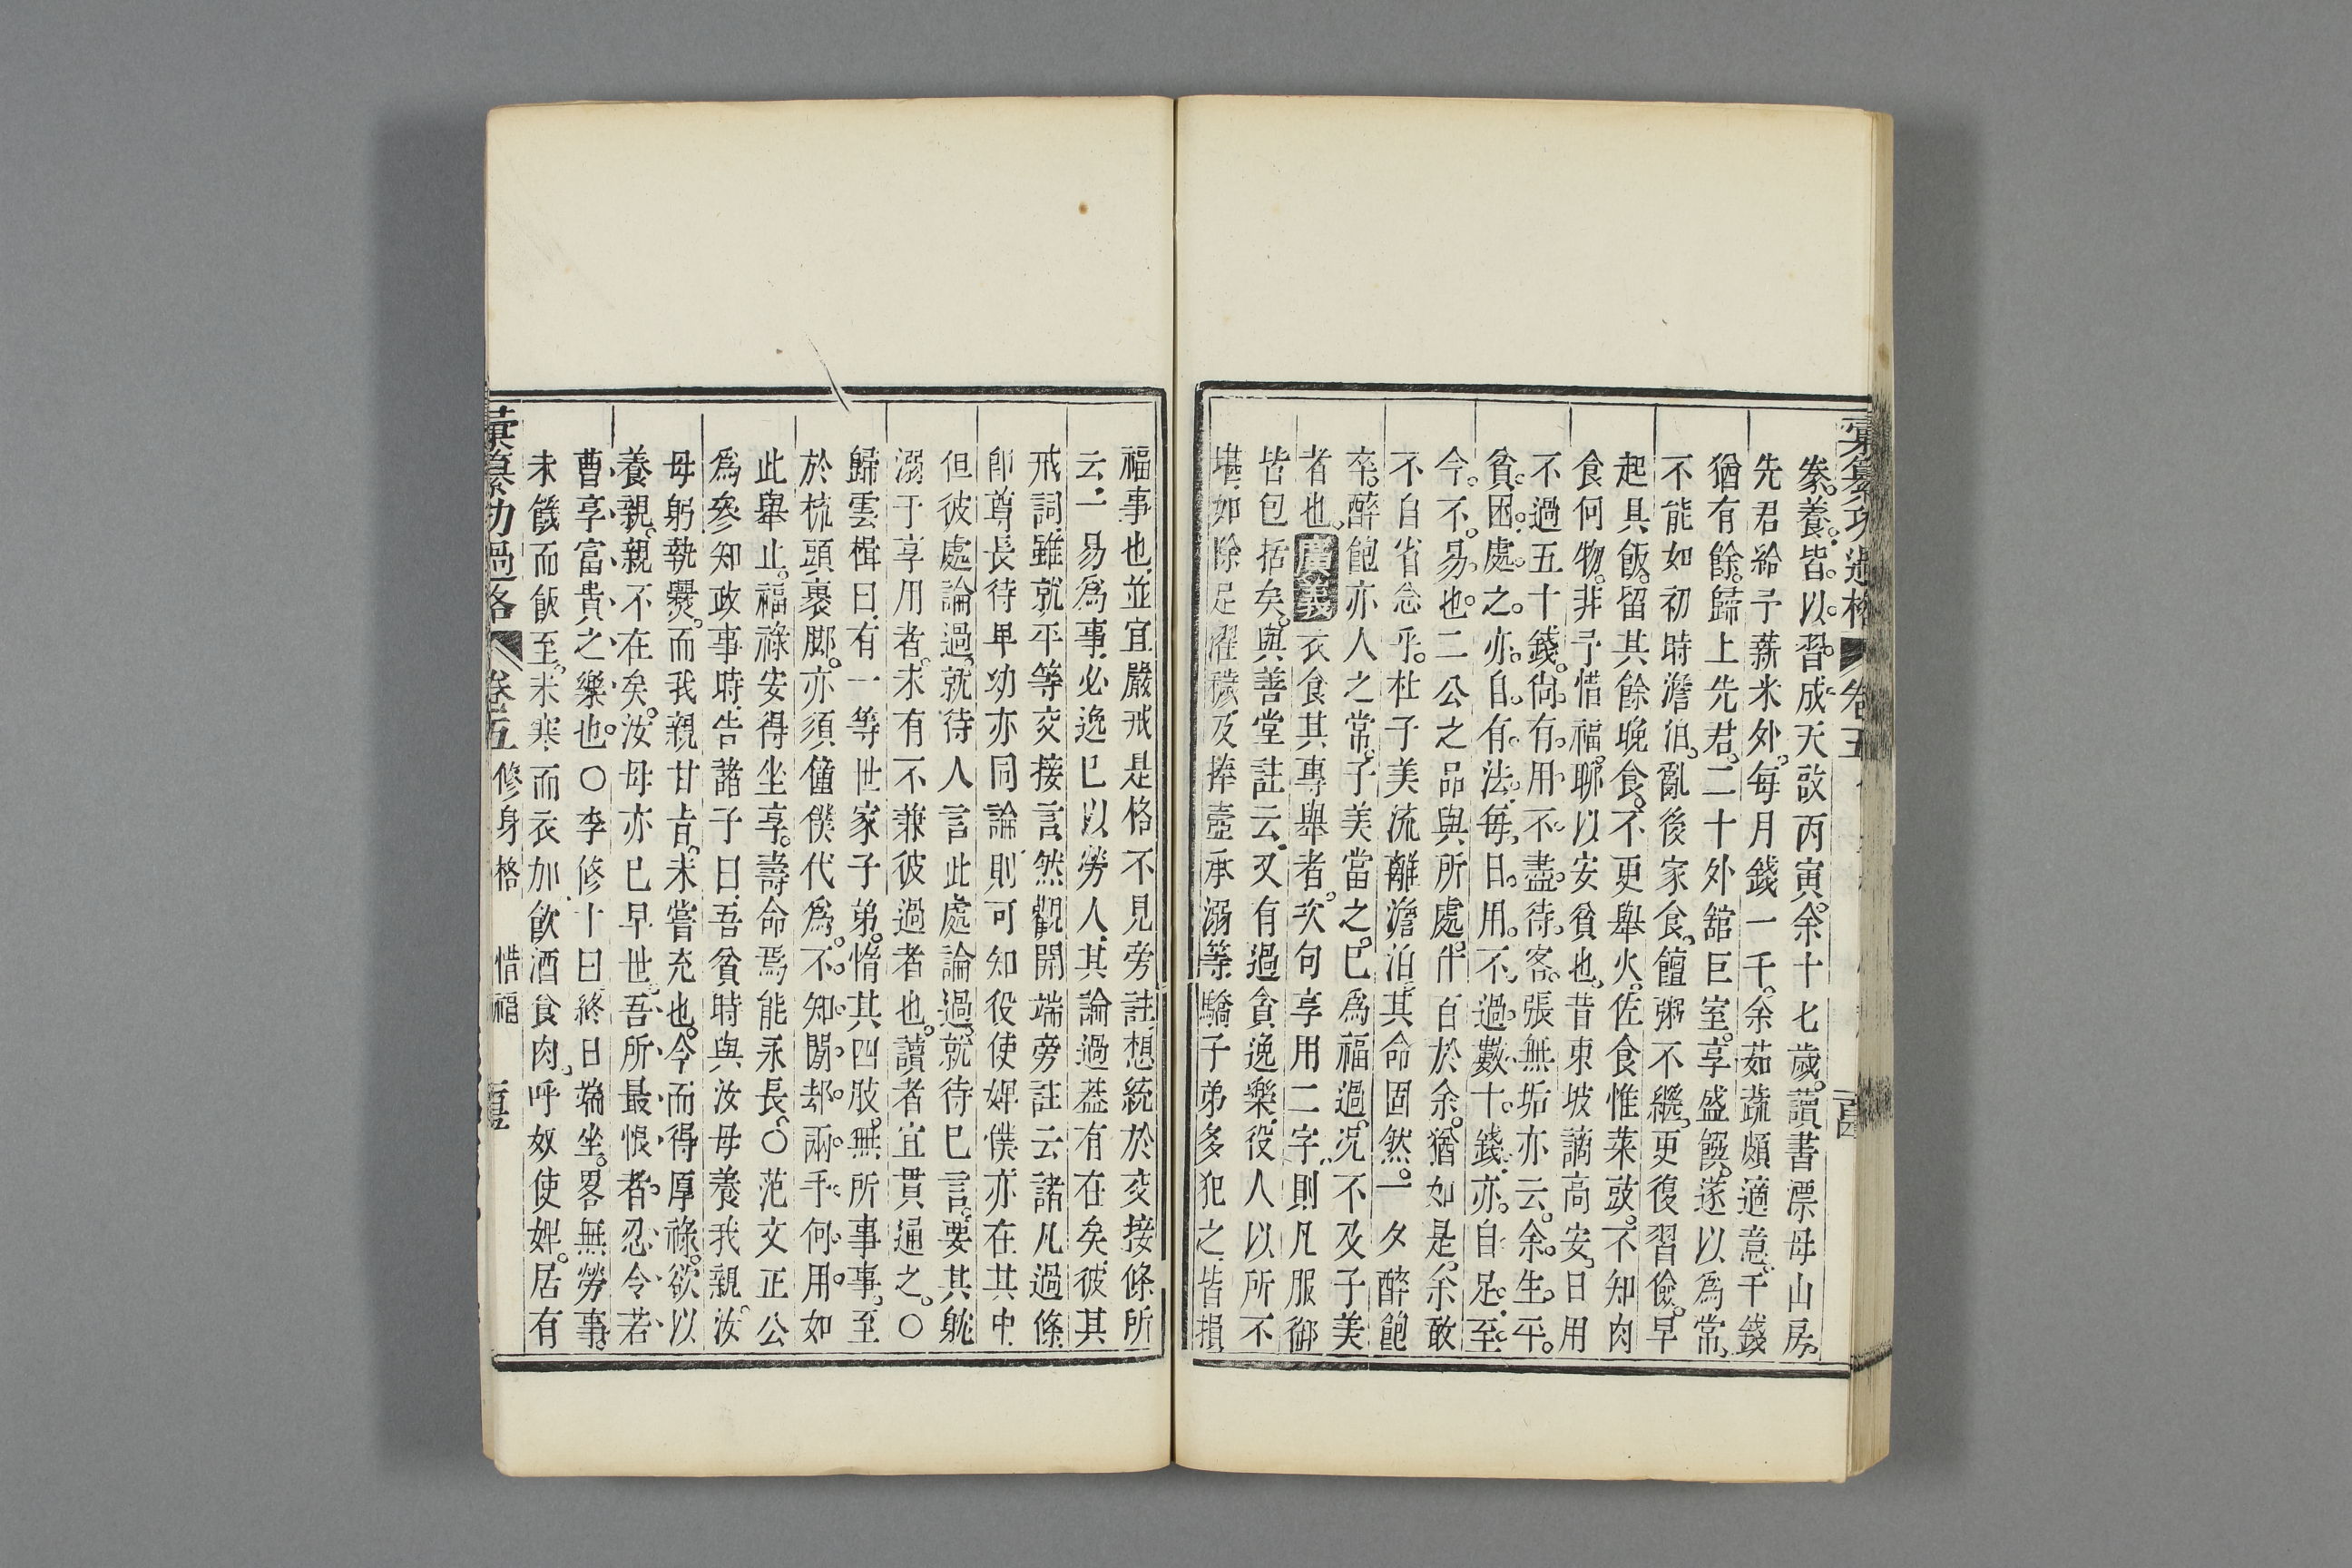 彙纂功過格 卷五
豢養皆以習成天啟丙寅余十七歲讀書漂母山房
先君給予薪米外每月錢一千余茹蔬頗適意千錢
猶有餘歸上先君二十外舘巨室享盛饌遂以爲常
不能如初時澹泊亂後家食饘粥不繼更復習儉早
起具飯留其餘晚食不更舉火佐食惟菜豉不知肉
食何物非予惜福聊以安貧也昔東坡謫高安日用
不過五十錢尙有用不盡待客張無垢亦云余生平
貧困處之亦自有法每日用不過數十錢亦自足至
今不易也二公之品與所處什百於余猶如是余敢
不自省念乎杜子美流離澹泊其命固然一夕醉飽
卒醉飽亦人之常子美當之已爲福過况不及子美
者也廣義衣食其專舉者次句享用二字則凡服御
皆包括矣與善堂註云又有過貪逸樂役人以所不
堪如除足濯穢及捧壼承溺等驕子弟多犯之皆損
福事也並宜嚴戒是格不見旁註想統於交接條所
戒詞雖就平等交接言然觀開端旁註云諸凡過條
云一易爲事必逸已以勞人其論過葢有在矣彼其
卽尊長待卑幼亦同論則可知役使婢僕亦在其中
但彼處論過就待人言此處論過就待已言要其躭
溺于享用者未有不兼彼過者也讀者宜貫通之○
歸雲楫曰有一等世家子弟惰其四肢無所事事至
於梳頭裹脚亦須僮僕代爲不知閒却兩手何用如
此舉止福祿安得坐享壽命焉能永長○范文正公
爲參知政事時告諸子曰吾貧時與汝母養我親汝
母躬執爨而我親甘旨未嘗充也今而得厚祿欲以
養親親不在矣汝母亦已早世吾所最恨者忍令若
曹享富貴之樂也○李修十曰終日端坐畧無勞事
未饑而飯至未寒而衣加飮酒食肉呼奴使婢居有
彙纂功過格 卷五 修身格 惜福